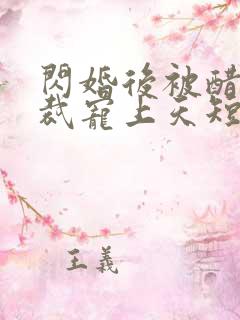 閃婚後被醋
裁寵上天短
王義